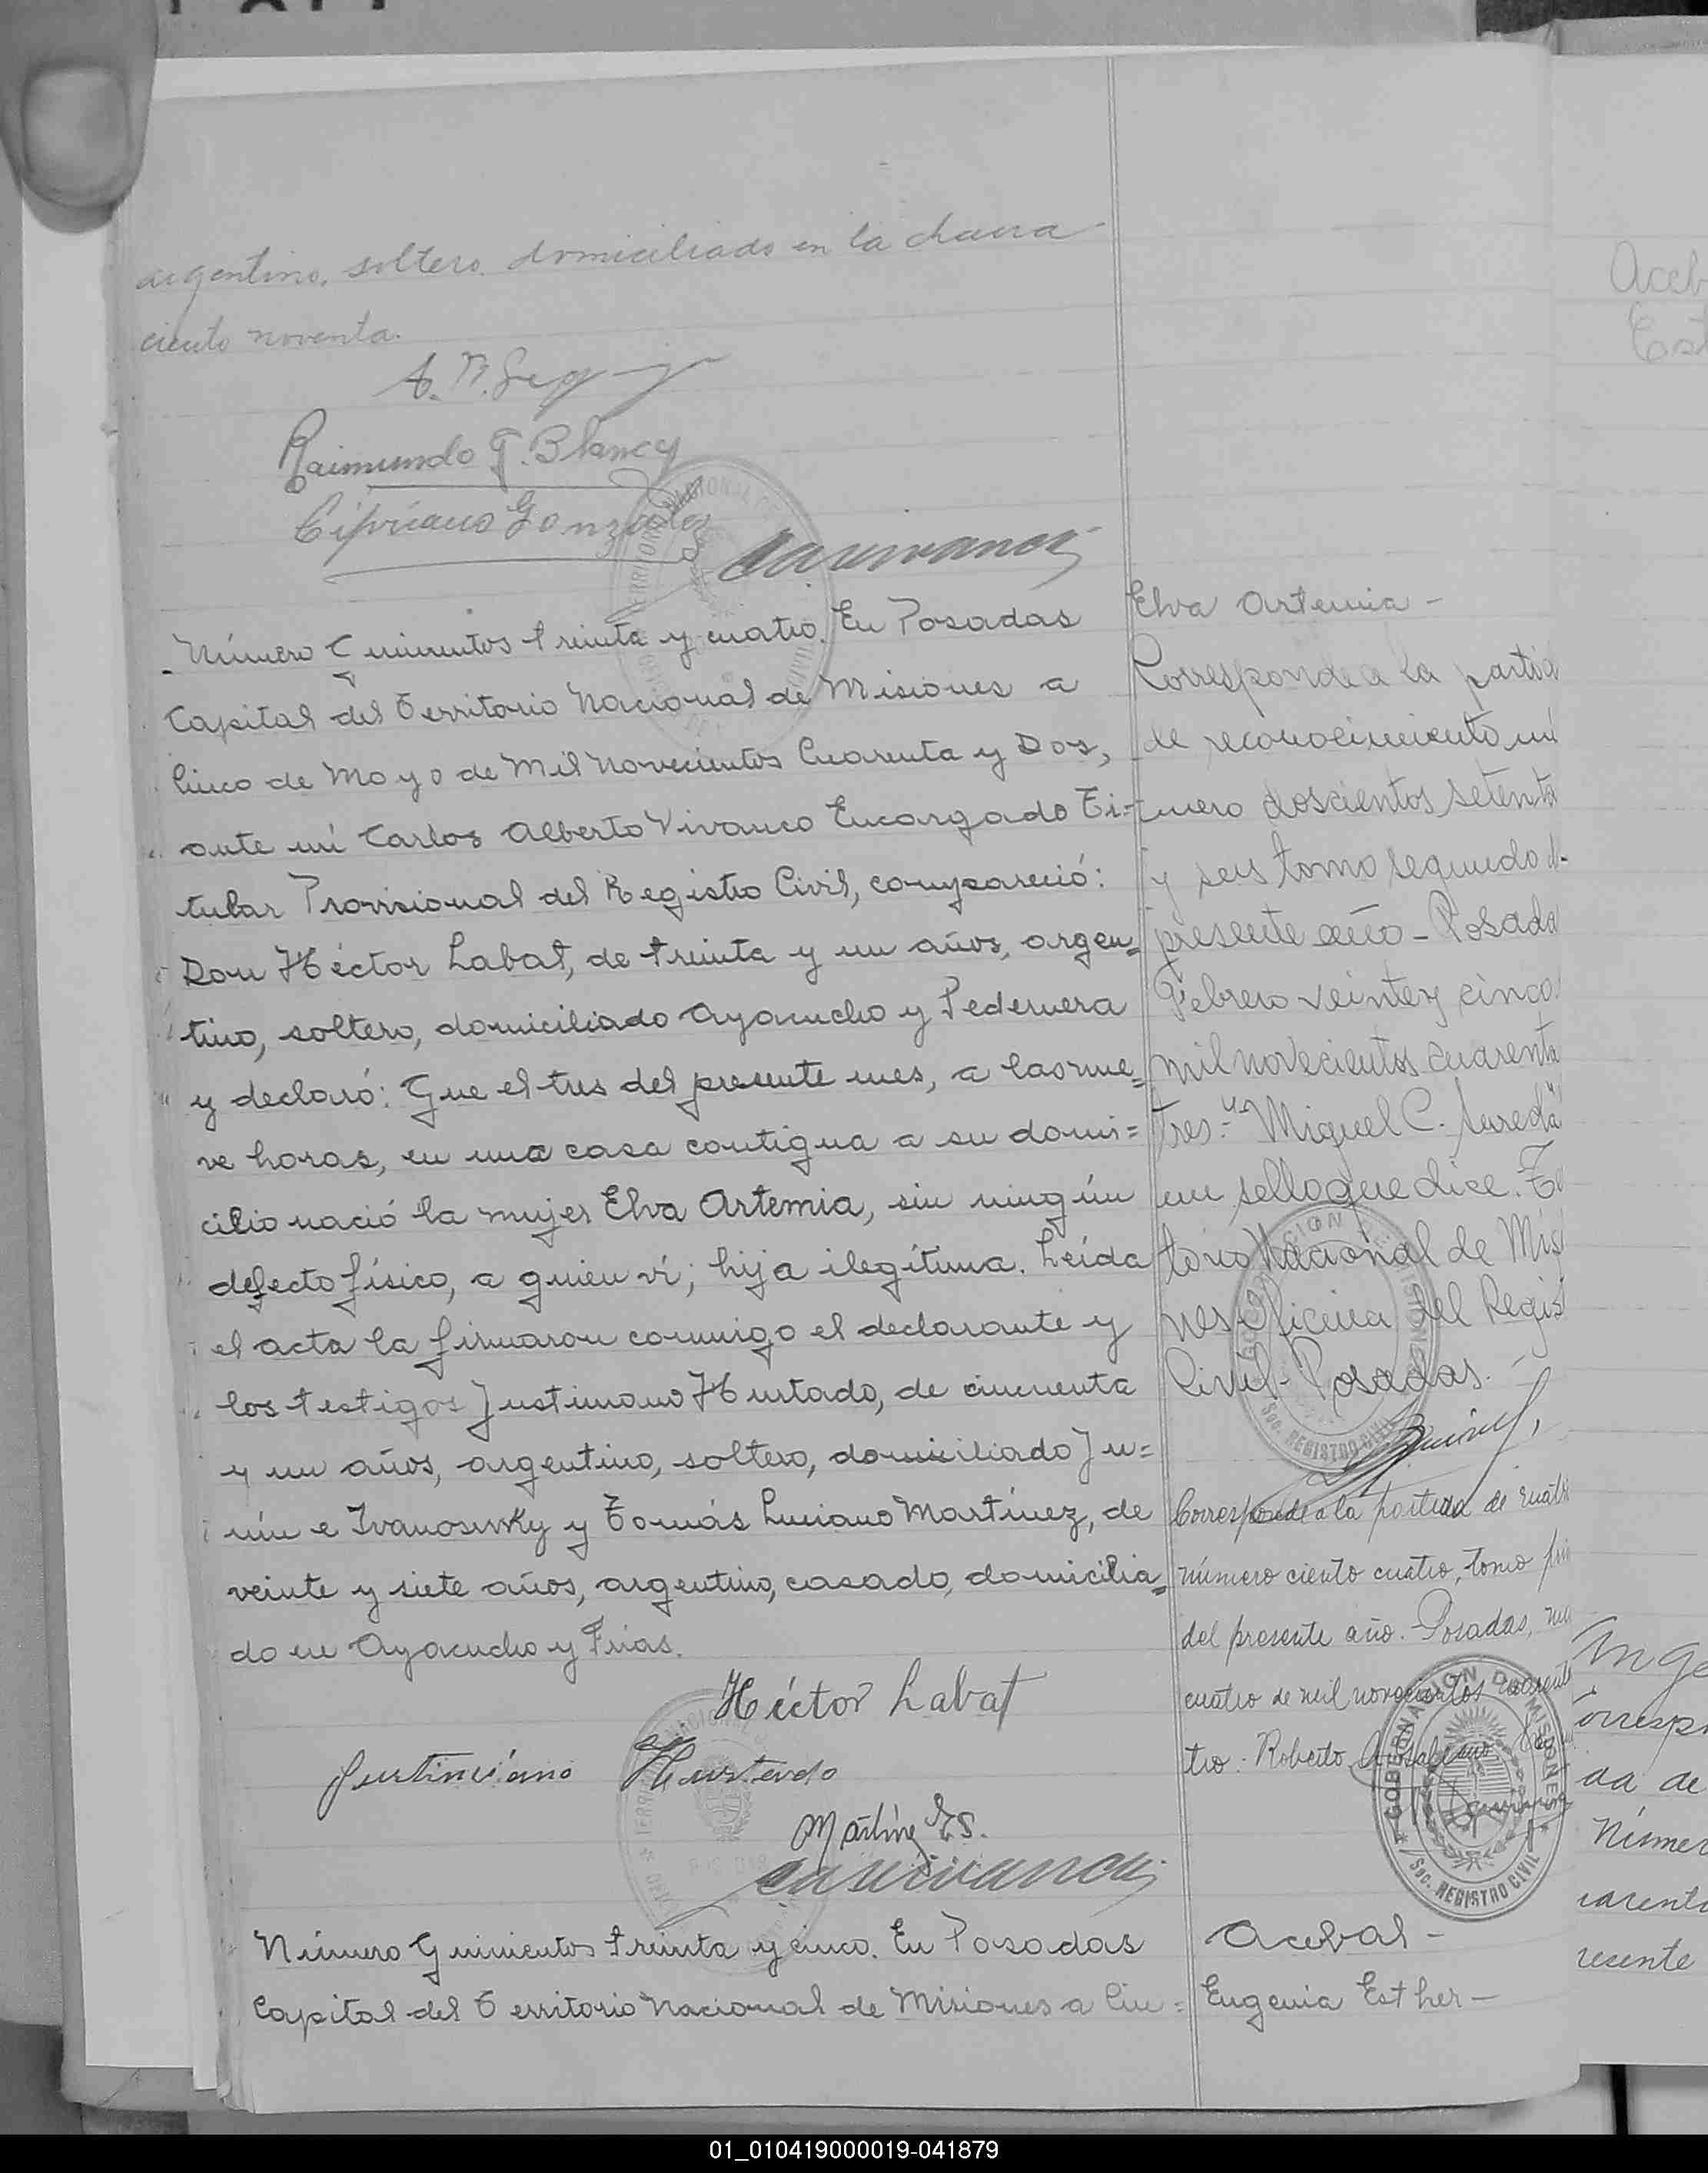 argentino, soltero domiciliado en la chacra
ciento noventa.
Raimundo G. Blanco
Cipriano Gonzalez
Número Quinientos treinta y cuatro. En Posadas
Capital del Territorio Nacional de Misiones a
Cinco de Mayo de Mil Novecientos Cuarenta y Dos,
ante mí Carlos Alberto Vivanco Encargado Ti=
tular Provisional del Registro Civil, compareció:
Don Héctor Labat, de treinta y un años, argen=
tino, soltero, domiciliado Ayacucho y Pedernera
y declaró: Que el tres del presente mes, a las nue=
ve horas, en una casa contigua a su domi=
cilio nació la mujer Elva Artemia, sin ningún
defecto físico, a quien ví; hija ilegítima. Leída
el acta la firmaron conmigo el declarante y
los testigos Justiniano Hurtado, de cincuenta
y un años, argentino, soltero, domiciliado Ju=
nín e Ivanowsky y Tomás Luciano Martínez, de
veinte y siete años, argentino, casado, domicilia=
do en Ayacucho y Frias.
Héctor Labat
Justiniano Hurtado
Martínez
Número Quinientos treinta y cinco. En Posadas
Capital del Territorio Nacional de Misiones a Cin=
Elva Artemia -
Corresponde a la partida
de reconocimiento nú
mero doscientos setenta
y seis tomo segundo d
presente año - Posada
Febrero veinte y cinco
mil novecientos cuarenta
tres.- Miguel C.
un sello que dice. Te
torio Nacional de Mis
nes Oficina del Regis
Civil - Posadas. -
GOBERNACION DE MISIONES
Sec. REGISTRO CIVIL
Corresponde a la partida de
número ciento cuatro, tomo pri
del presente año. Posadas,
cuatro de mil novecientos cuarent
tro. Roberto
GOBERNACION DE MISIONES
Sec. REGISTRO CIVIL
Acebal -
Eugenia Esther -
Aceb
Est
da de
Númer
arenta
resente
01_010419000019-041879